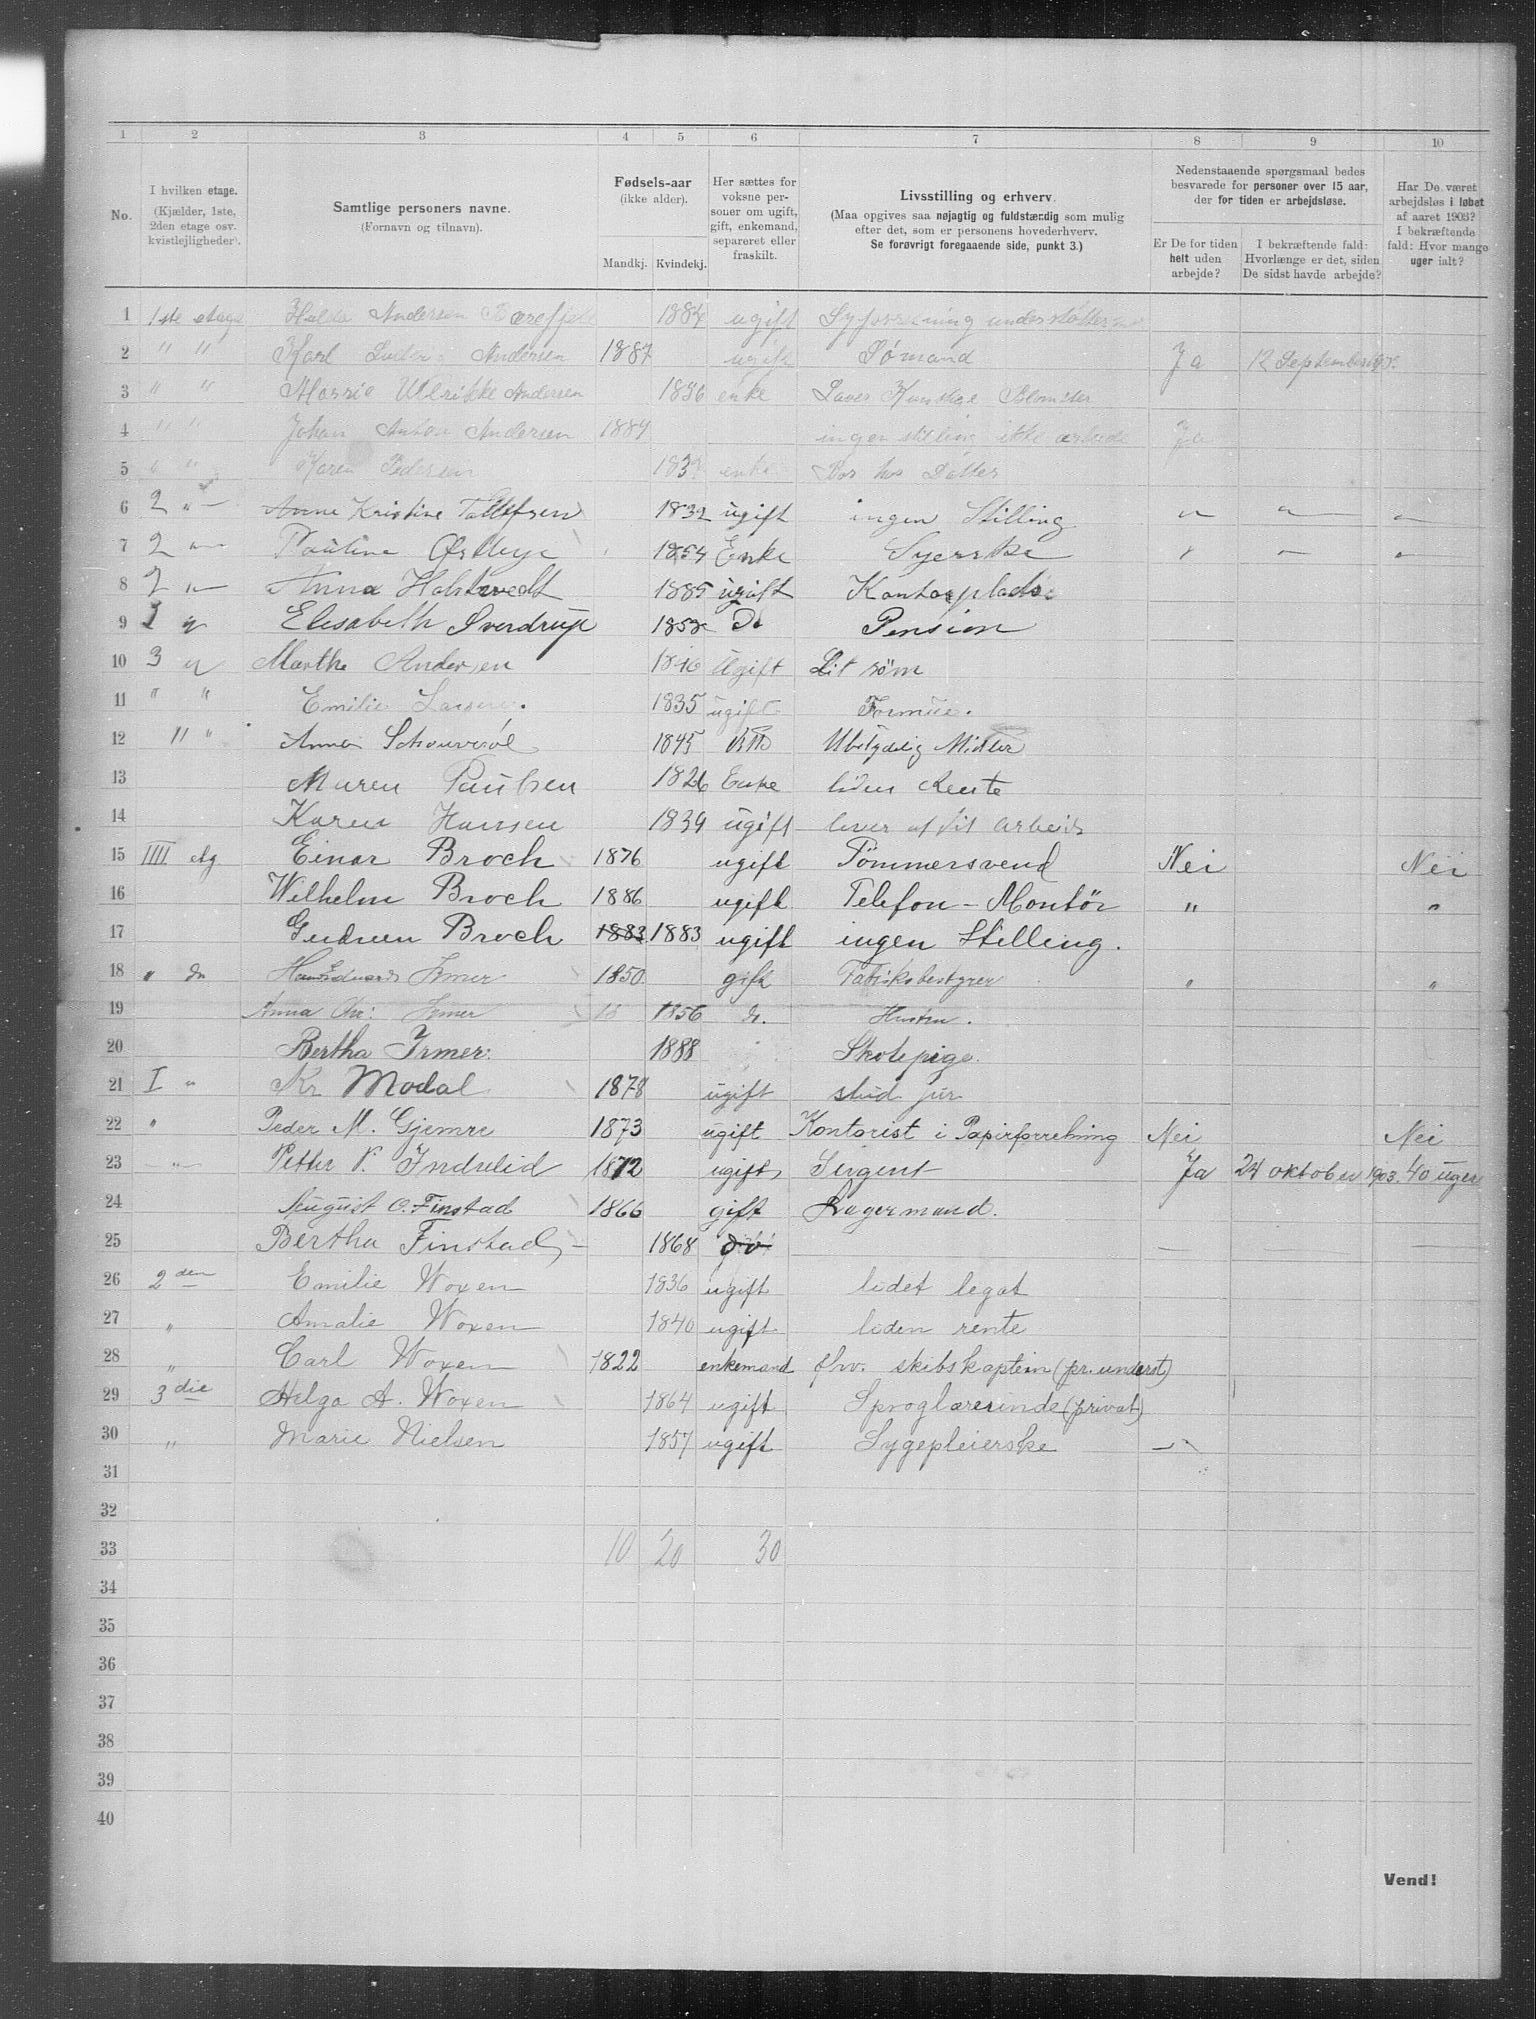 1 2 3 4 5 6 7 8 9 10
No.
I hvilken etage.
(Kjælder, 1ste, 2den etage osv. kvistlejligheder).
Samtlige personers navne.
(Fornavn og tilnavn).
Fødsels-aar
(ikke alder).
Mandkj. Kvindekj.
Her sættes for voksne personer om ugift, gift, enkemand, separeret eller fraskilt.
Livsstilling og erhverv.
(Maa opgives saa nøjagtig og fuldstændig som mulig efter det, som er personens hovederhverv.
Se forøvrigt foregaaende side, punkt 3.)
Nedenstaaende spørgsmaal bedes besvarede for personer over 15 aar, der for tiden er arbejdsløse.
Er De for tiden helt uden arbejde?
I bekræftende fald: Hvorlænge er det, siden De sidst havde arbejde?
Har De været arbejdsløs i løbet af aaret 1903? I bekræftende fald: Hvor mange uger ialt?
1 1ste etage Hulda Andersen 1884 ugift
2 " " Karl Andersen 1887 ugift Sømand Ja 12 September
3 " " Ulrikke Andersen 1856 enke Laver Blomster
4 " " Johan Anton Andersen 1889 ingen stiling ikke arbeide Ja
5 " " Karen Pedersen enke Bor hos Datter
6 2 " Anne Kristine Tollefsen 1832 ugift ingen Stilling " " "
7 2 " Pauline Østbye 1854 Enke Syerske " " "
8 2 " Anna 1885 ugift Kontorplads
9 1 " Elisabeth Sverdrup 1858 Do Pension
10 3 " Marthe Andersen ugift Lit søm
11 " " Emilie Larsen. 1835 ugift Formue.
12 " " Anna 1845 Ubetydelig Midler
13 Maren Paulsen 1826 Enke liden Rente
14 Karen Hansen 1839 ugift lever af sit arbeid
15 IIII etg Einar Broch 1876 ugift Tömmersvend Nei Nei
16 Wilhelm Broch 1886 ugift Telefon-Montör " "
17 Gudrun Broch 1883 1883 ugift ingen Stilling.
18 " do Irmer 1850 gift Fabrikbestyrer " "
19 Anna Chr: Irmer 1856 do. Hustru.
20 Bertha Irmer. 1888 Skolepige.
21 I " Kr Modal 1878 ugift stud jur
22 " Peder M. Gjemre 1873 ugift Kontorist i Papirforretning Nei Nei
23 " Petter P. Indrelid 1872 ugift Sergent Ja 24 oktober 1903. 40 uger
24 August O. Finstad 1866 gift Lagermand.
25 Bertha Finstad 1868 do
26 2den Emilie Woxen 1836 ugift lidet legat
27 " Amalie Woxen 1840 ugift liden rente
28 " Carl Woxen 1822 enkemand fhv. skibskaptein (pr. underst)
29 3die Helga A. Woxen 1864 ugift Sproglærerinde (privat)
30 " Marie Nielsen 1857 ugift Sygepleierske
31
32
33 10 20 30
34
35
36
37
38
39
40
Vend!